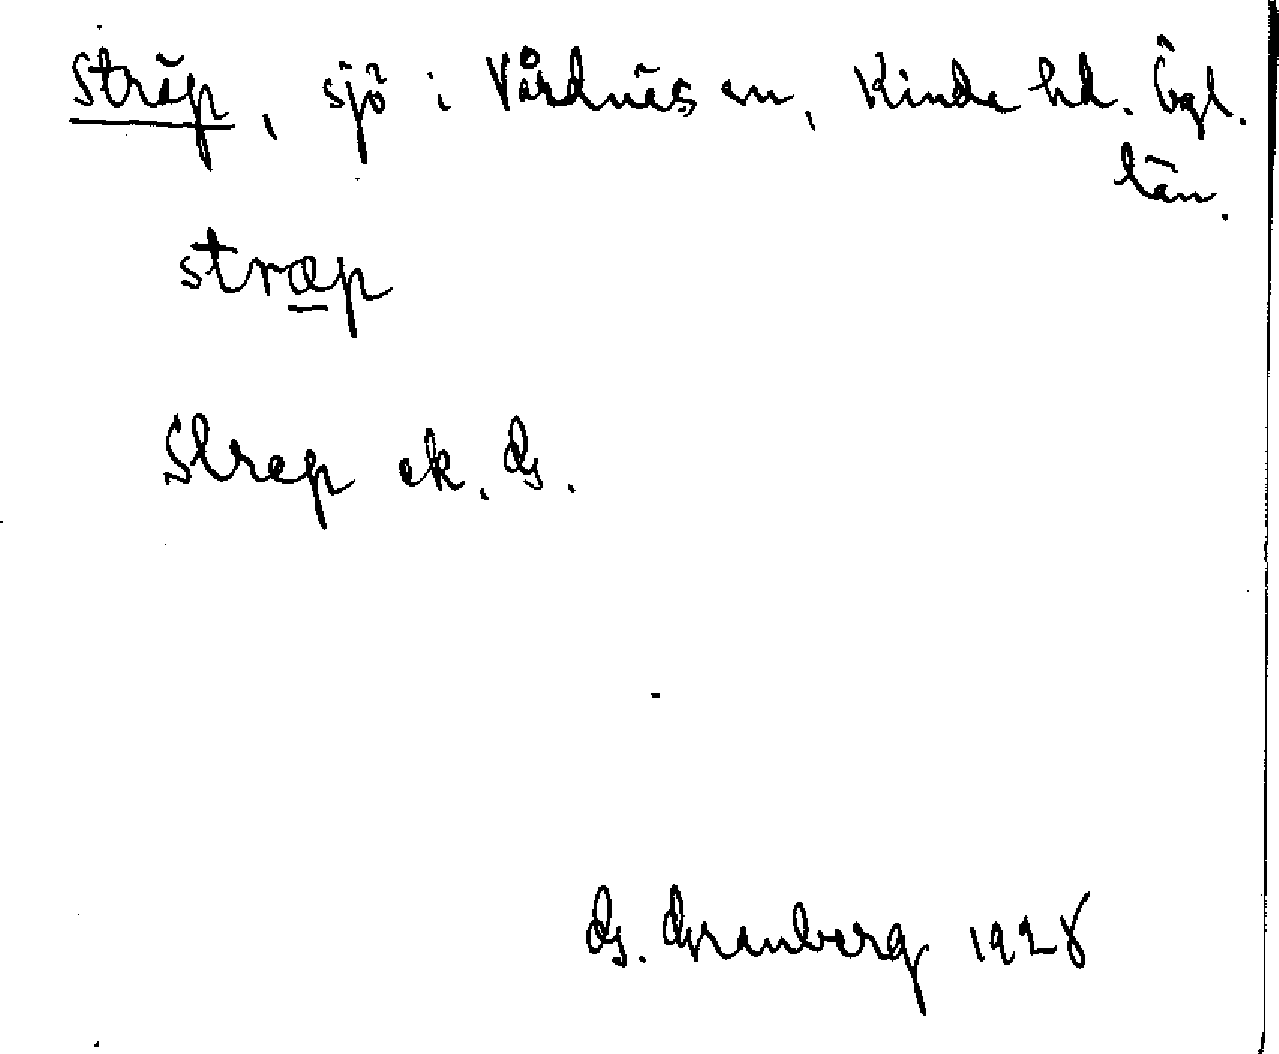 Sträp, sjö i Vårdnäs sn, Kinda hd. Ögl.
län.
stræp
Strep ek. G.
G. Granberg 1928